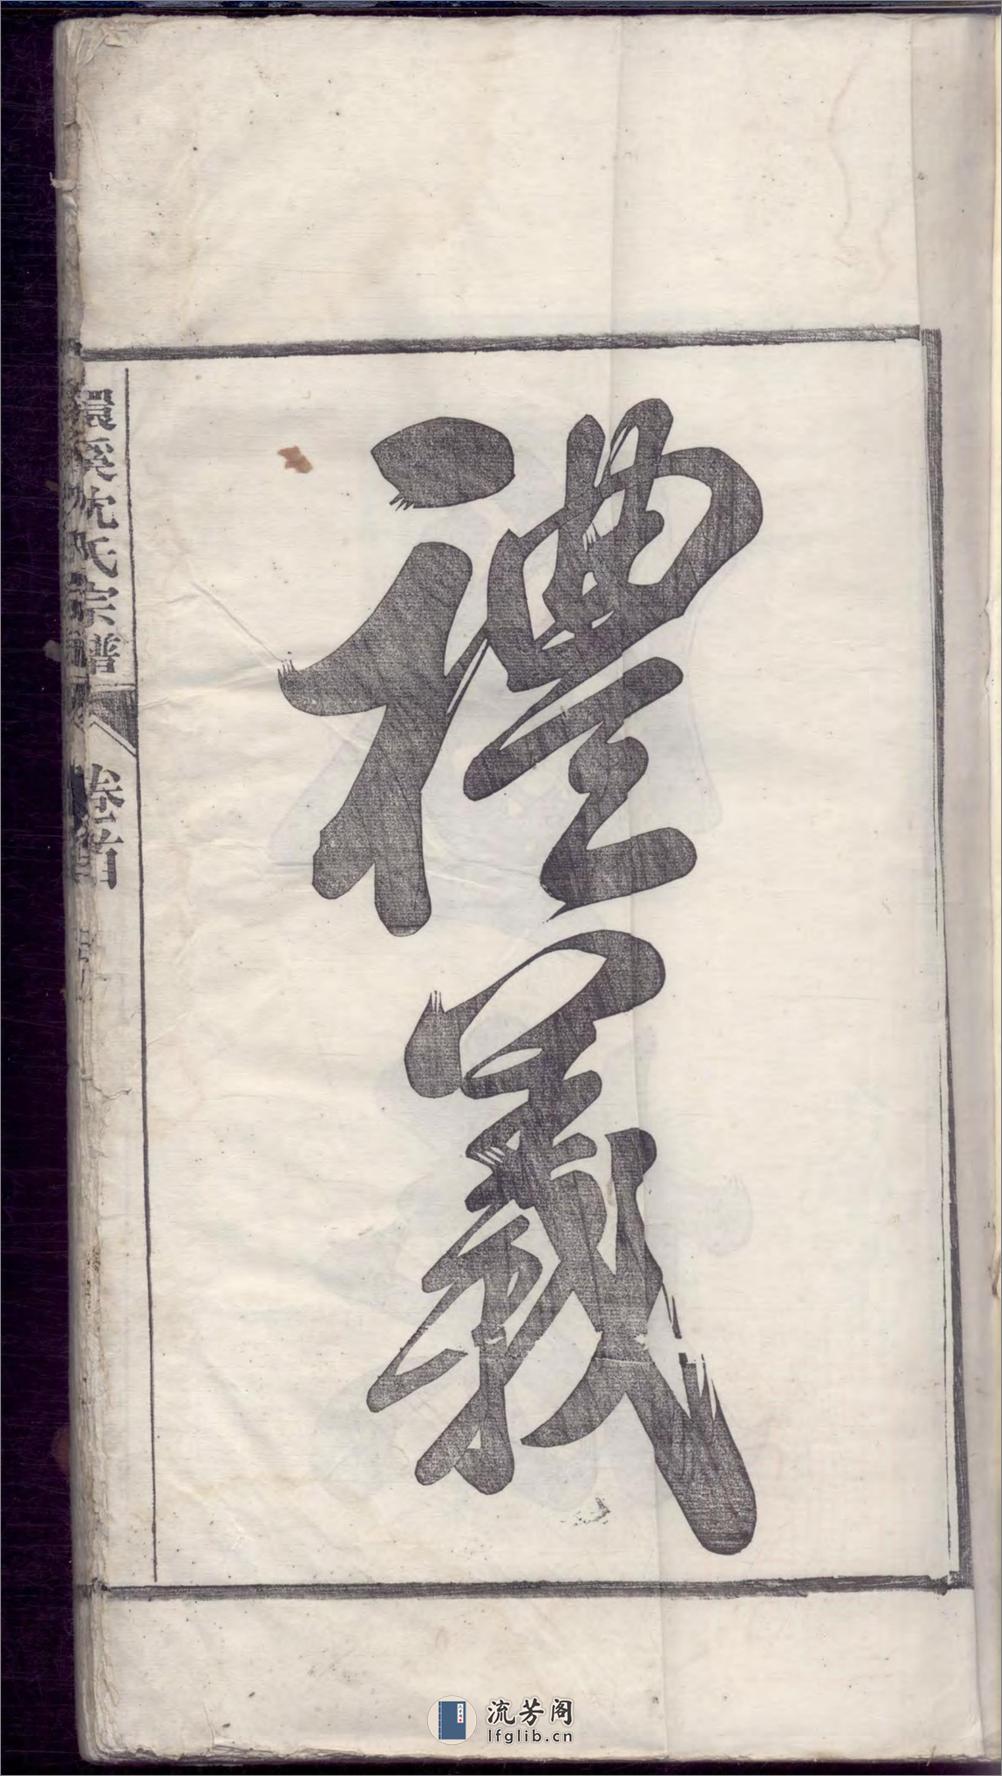 禮義
環溪沈氏宗譜
卷首
流芳阁
lfglib.cn